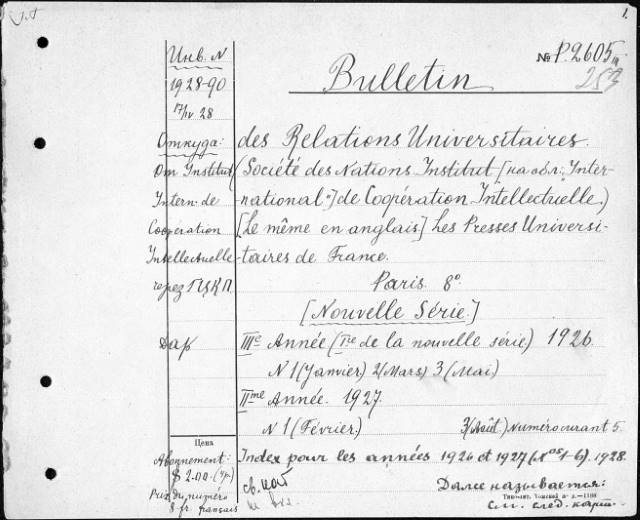 1.
Инв. N
№ P.2605
253
1928-90
Bulletin
17/IV 28
Откуда:
des Relations Universitaires.
От Institut
(Société des Nations Institut [на обл.: "Inter-
Intern. de
national"] de Coopération Intellectuelle.)
Coopération
[Le même en anglais] Les Presses Universi-
Intellectuelle
taires de France.
через
Paris. 8°
[Nouvelle Série.]
Дар
IIIe Année (Ire de la nouvelle série) 1926.
N 1 (Janvier) 2 (Mars) 3 (Mai)
IIme Année. 1927.
N 1 (Février.) 3 (Août) Numéro curant 5.
Цена
Abonnement:
Index pour les années 1926 et 1927 (Nos 1-6). 1928.
$ 2.00
Prix du numéro
Далее называется:
8 fr. français
см. след. карт.